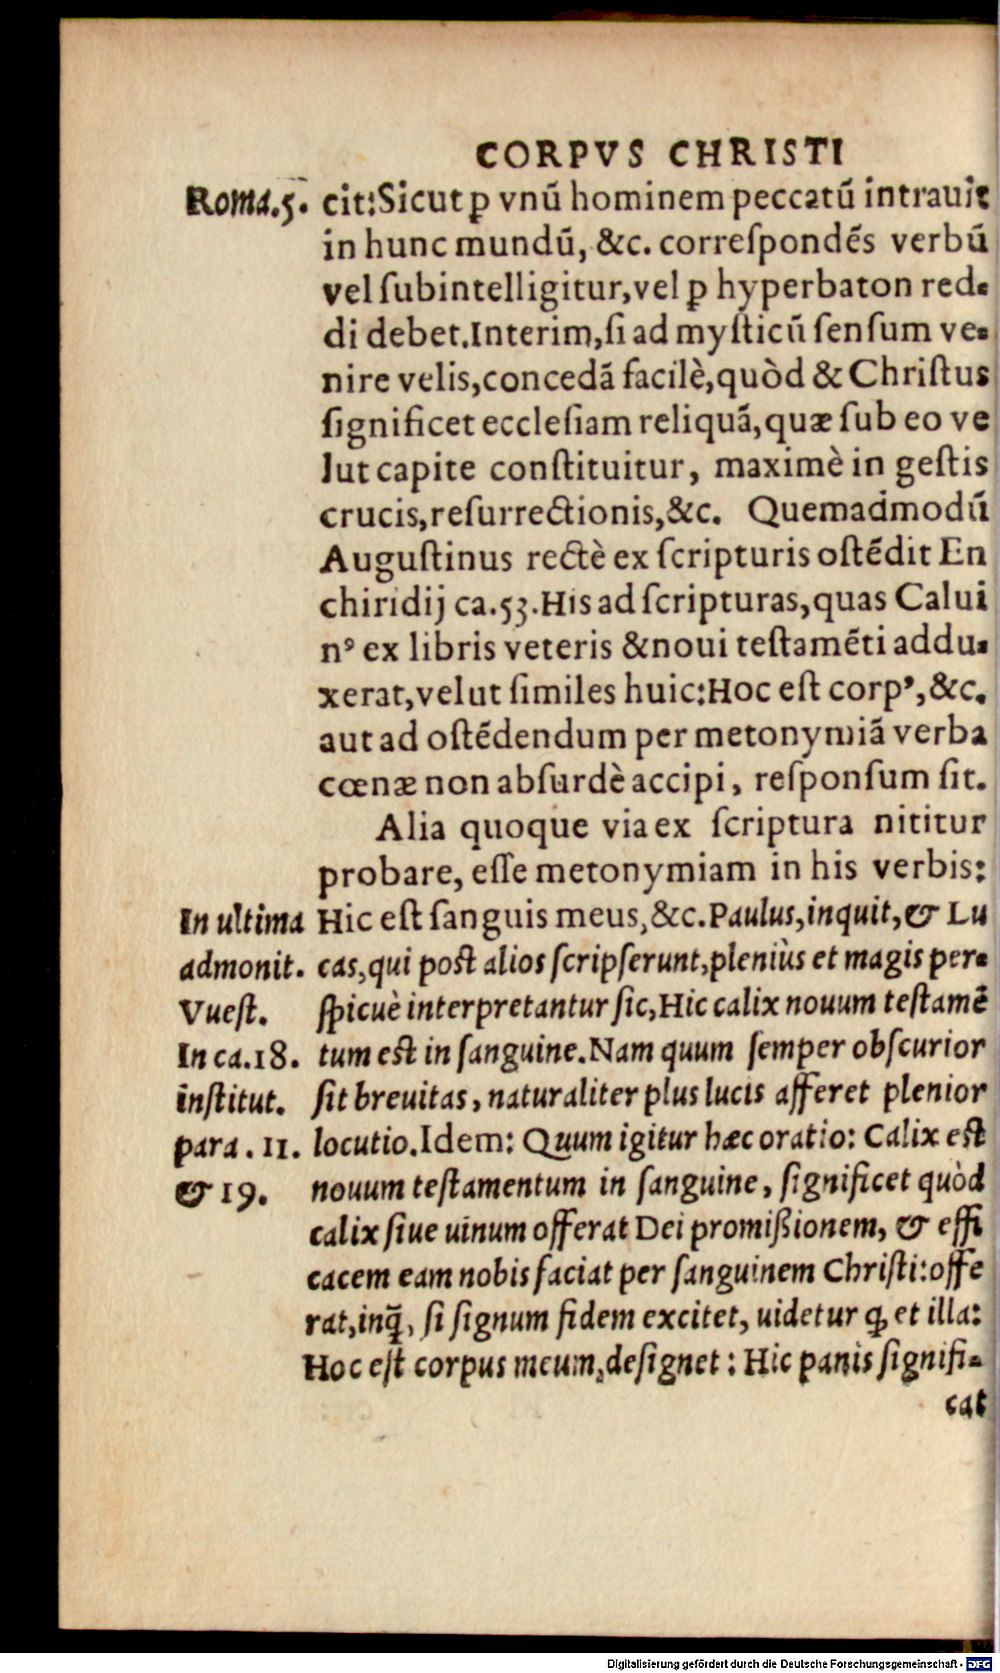 CORPVS CHRISTI
Roma.5. cit:Sicut ꝑ vnũ hominem peccatũ intrauit
in hunc mundũ, &c. correſpondẽs verbũ
vel ſubintelligitur,vel ꝑ hyperbaton red-
di debet.Interim,ſi ad myſticũ ſenſum ve-
nire velis,concedã facilè,quòd & Chriſtus
ſignificet eccleſiam reliquã,quæ ſub eo ve
lut capite conſtituitur, maximè in geſtis
crucis,reſurrectionis,&c. Quemadmodũ
Auguſtinus rectè ex ſcripturis oſtẽdit En
chiridij ca.53.His ad ſcripturas,quas Calui
nꝰ ex libris veteris &noui teſtamẽti addu-
xerat,velut ſimiles huic:Hoc eſt corpꝰ,&c.
aut ad oſtẽdendum per metonymiã verba
cœnæ non abſurdè accipi, reſponſum ſit.
Alia quoque via ex ſcriptura nititur
probare, eſſe metonymiam in his verbis:
In ultima Hic eſt ſanguis meus,&c.Paulus,inquit,& Lu
admonit. cas,qui poſt alios ſcripſerunt,pleniùs et magis per-
Vueſt. ſpicuè interpretantur ſic,Hic calix nouum teſtamẽ
In ca.18. tum eſt in ſanguine.Nam quum ſemper obſcurior
inſtitut. ſit breuitas, naturaliter plus lucis afferet plenior
para. 11. locutio.Idem: Quum igitur hæc oratio: Calix eſt
& 19. nouum teſtamentum in ſanguine, ſignificet quòd
calix ſiue uinum offerat Dei promißionem, & effi
cacem eam nobis faciat per ſanguinem Chriſti:offe
rat,inq̃, ſi ſignum fidem excitet, uidetur ꝙ et illa:
Hoc eſt corpus meum,deſignet : Hic panis ſignifi-
cat
Digitalisierung gefördert durch die Deutsche Forschungsgemeinschaft - DFG